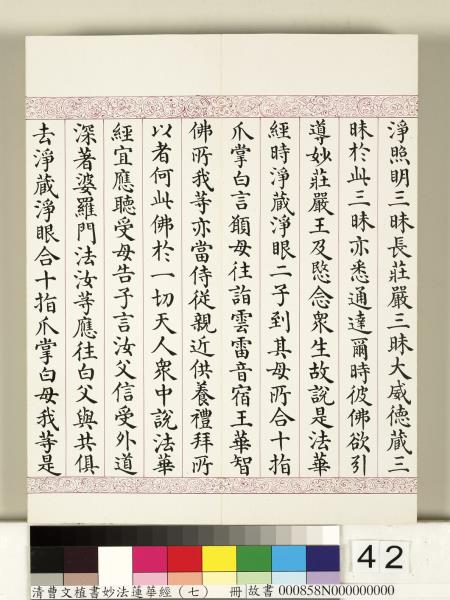 淨照明三昧長莊嚴三昧大威德藏三
昧於此三昧亦悉通達爾時彼佛欲引
導妙莊嚴王及愍念衆生故說是法華
經時淨藏淨眼二子到其母所合十指
爪掌白言願母往詣雲雷音宿王華智
佛所我等亦當侍從親近供養禮拜所
以者何此佛於一切天人衆中說法華
經宜應聽受母告子言汝父信受外道
深著婆羅門法汝等應往白父與共俱
去淨藏淨眼合十指爪掌白母我等是
42
清曹文植書妙法蓮華經(七) 冊 故書 000858N000000000